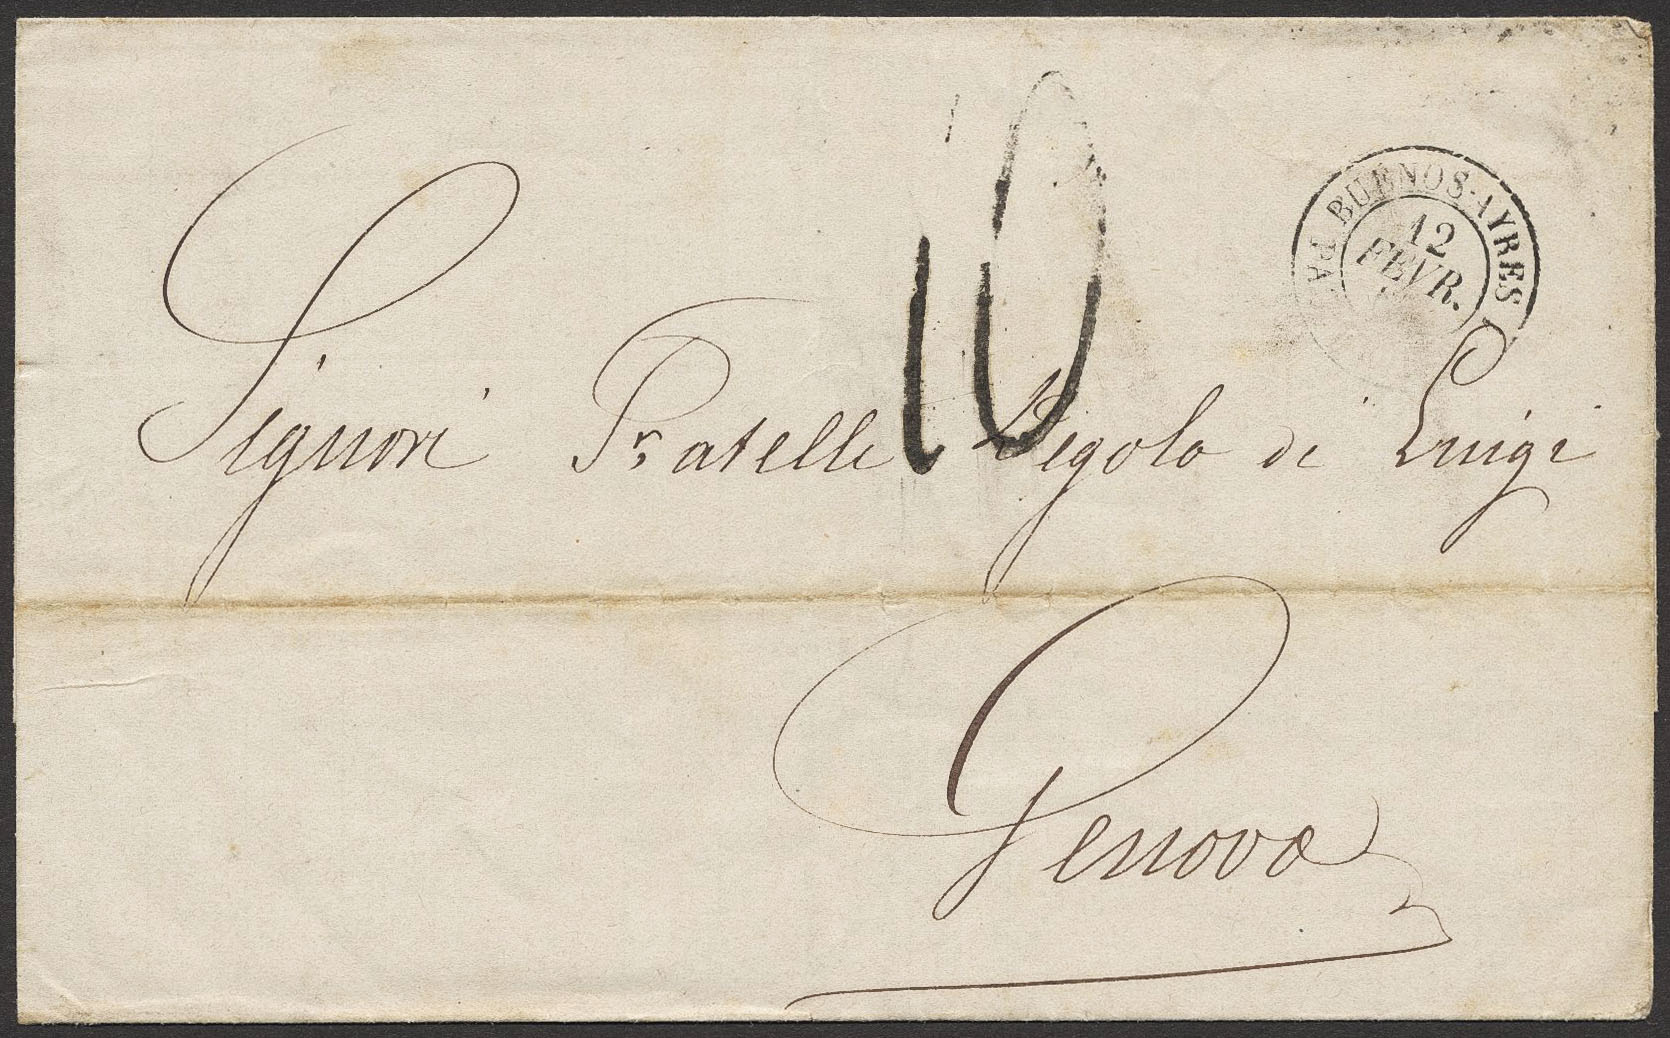 10
BUENOS-AYRES
12
FEVR.
Signori Fratelli Pegolo di Luigi
Genova